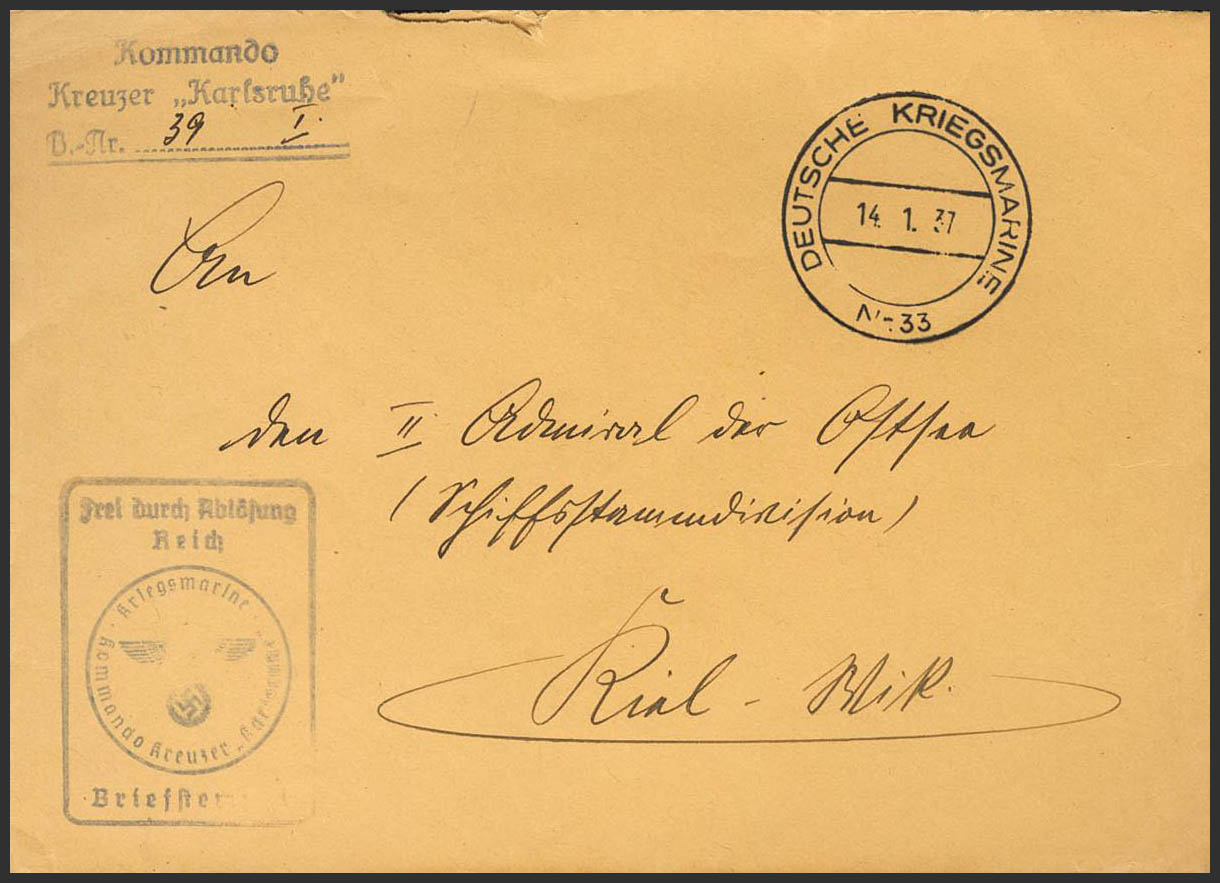 Kommando
Kreuzer „Karlsruhe”
B.-Nr. 39 I.
DEUTSCHE KRIEGSMARINE
14. 1. 37
Nr. 33
An
den II Admiral der Ostsee
(Schiffsstammdivision)
Kiel - Wik.
Frei durch Ablösung
Reich
Kriegsmarine
Kommando Kreuzer „Karlsruhe”